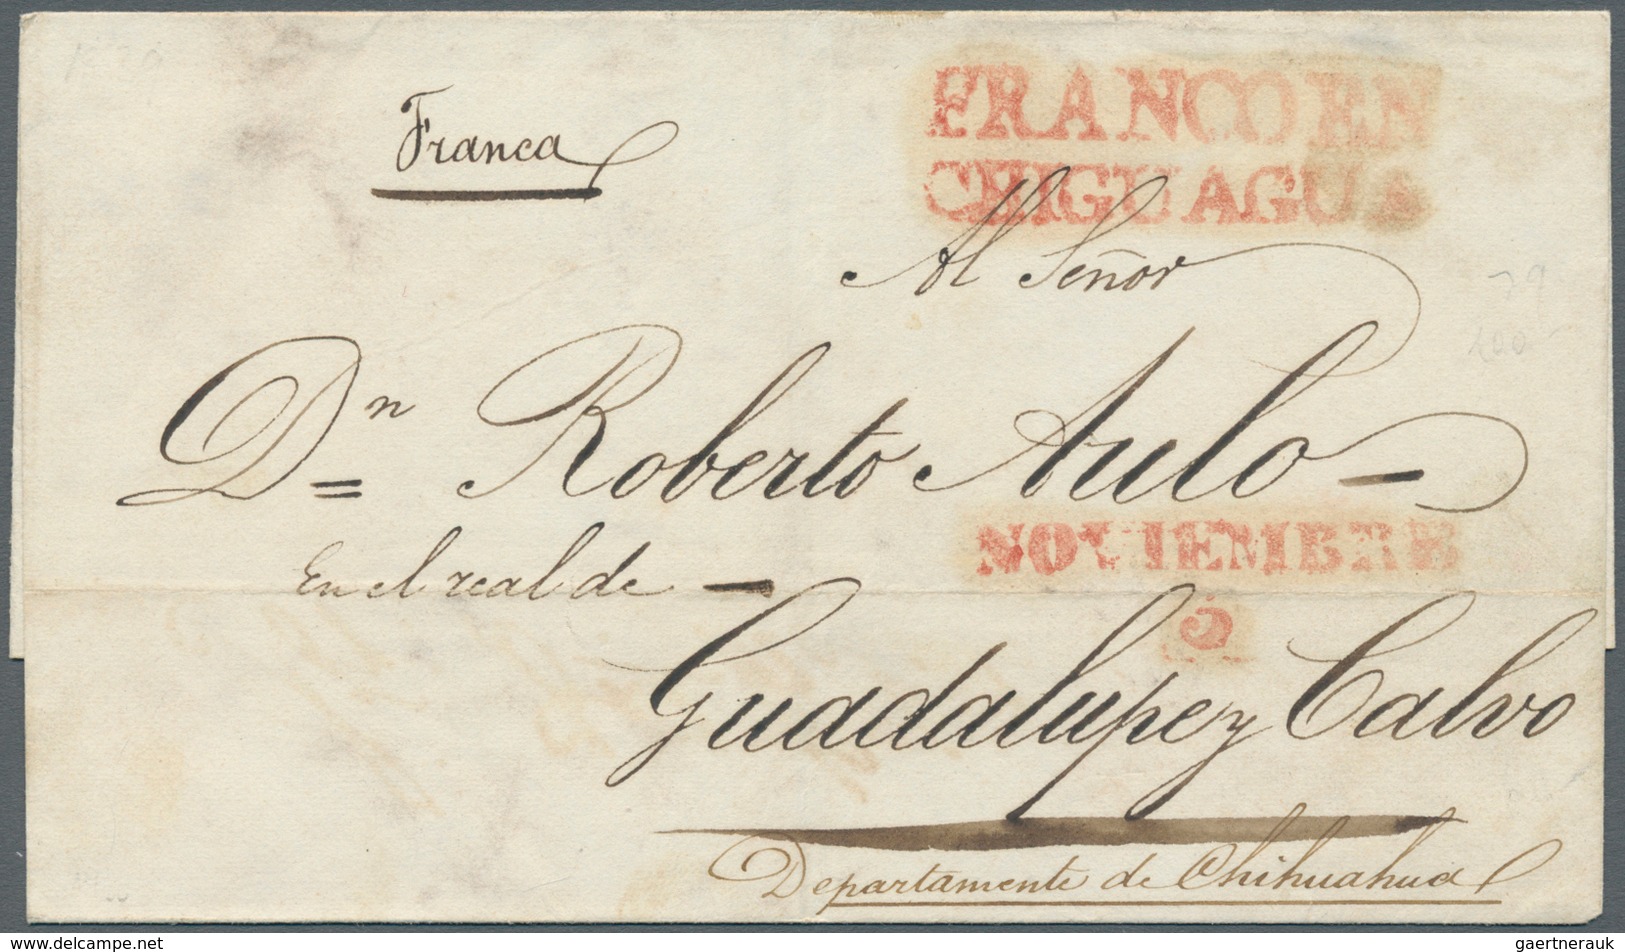 Franca
FRANCO EN
CHIGUAGUA
Al Señor
Dn = Roberto Aulo -
NOVIEMBRE
5
En el real de -
Guadalupe y Calvo
Departamente de Chihuahua
delcampe.net
gaertnerauk